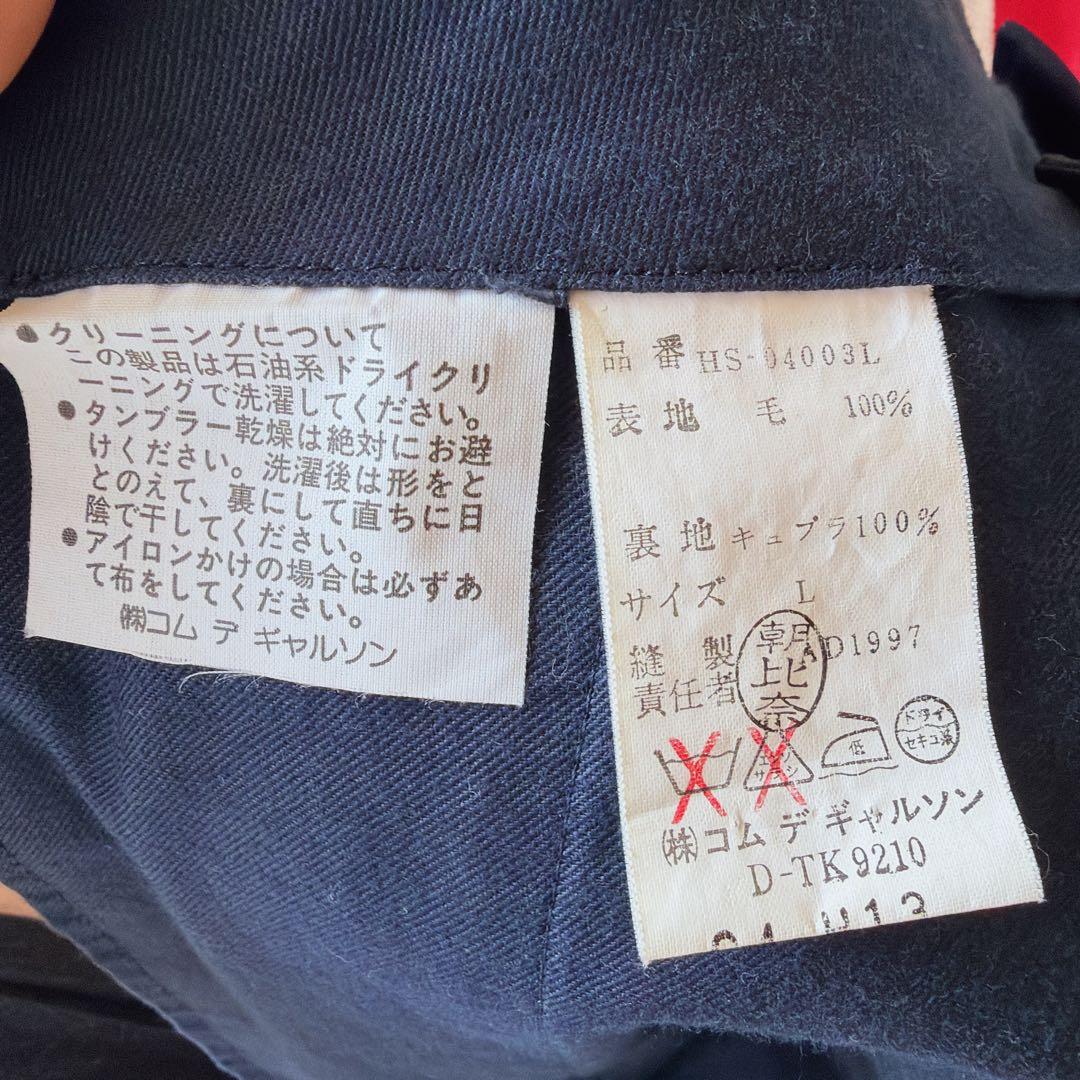 ● クリーニングについて
この製品は石油系ドライクリ
ーニングで洗濯してください。
● タンブラー乾燥は絶対にお避
けください。洗濯後は形をと
とのえて、裏にして直ちに日
陰で干してください。
● アイロンかけの場合は必ずあ
て布をしてください。
㈱コム デ ギャルソン
品番 HS-04003L
表地 毛 100%
裏地 キュプラ100%
サイズ L
縫製 AD1997
責任者
朝
比
奈
低
ドライ
セキユ系
㈱コム デ ギャルソン
D-TK9210